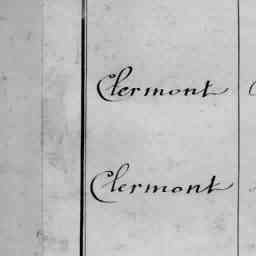 Clermont
Clermont